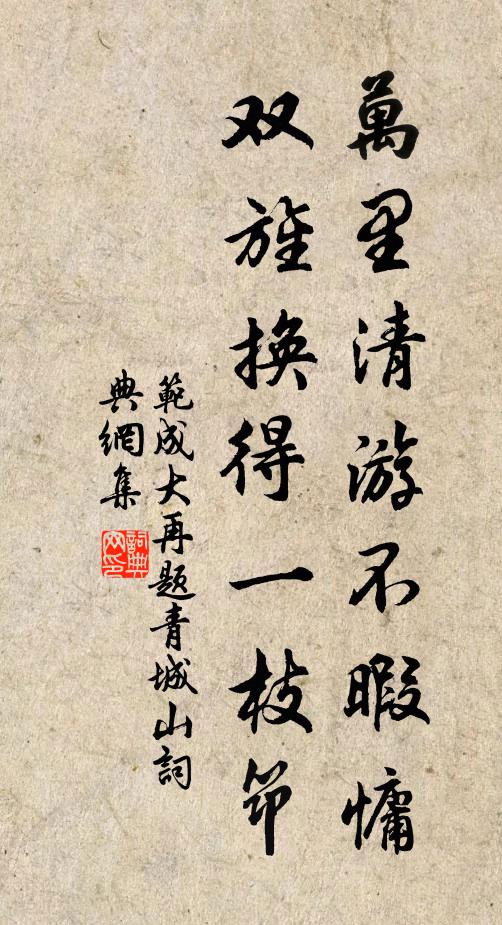 萬里清游不暇慵
双旌换得一枝筇
範成大再题青城山詞
典網集
詞典
网印